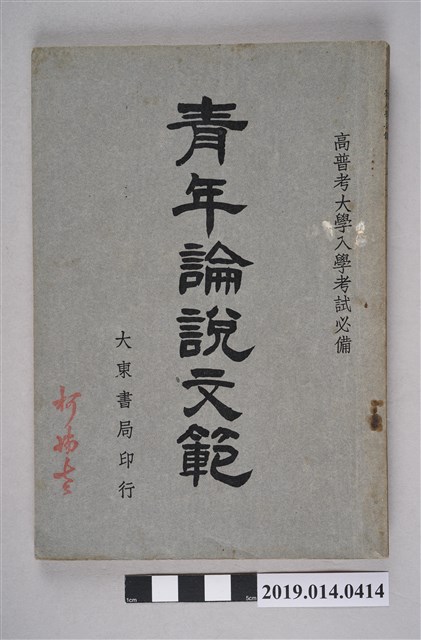 高普考大學入學考試必備
青年論說文範
大東書局印行
1cm
5cm
2019.014.0414